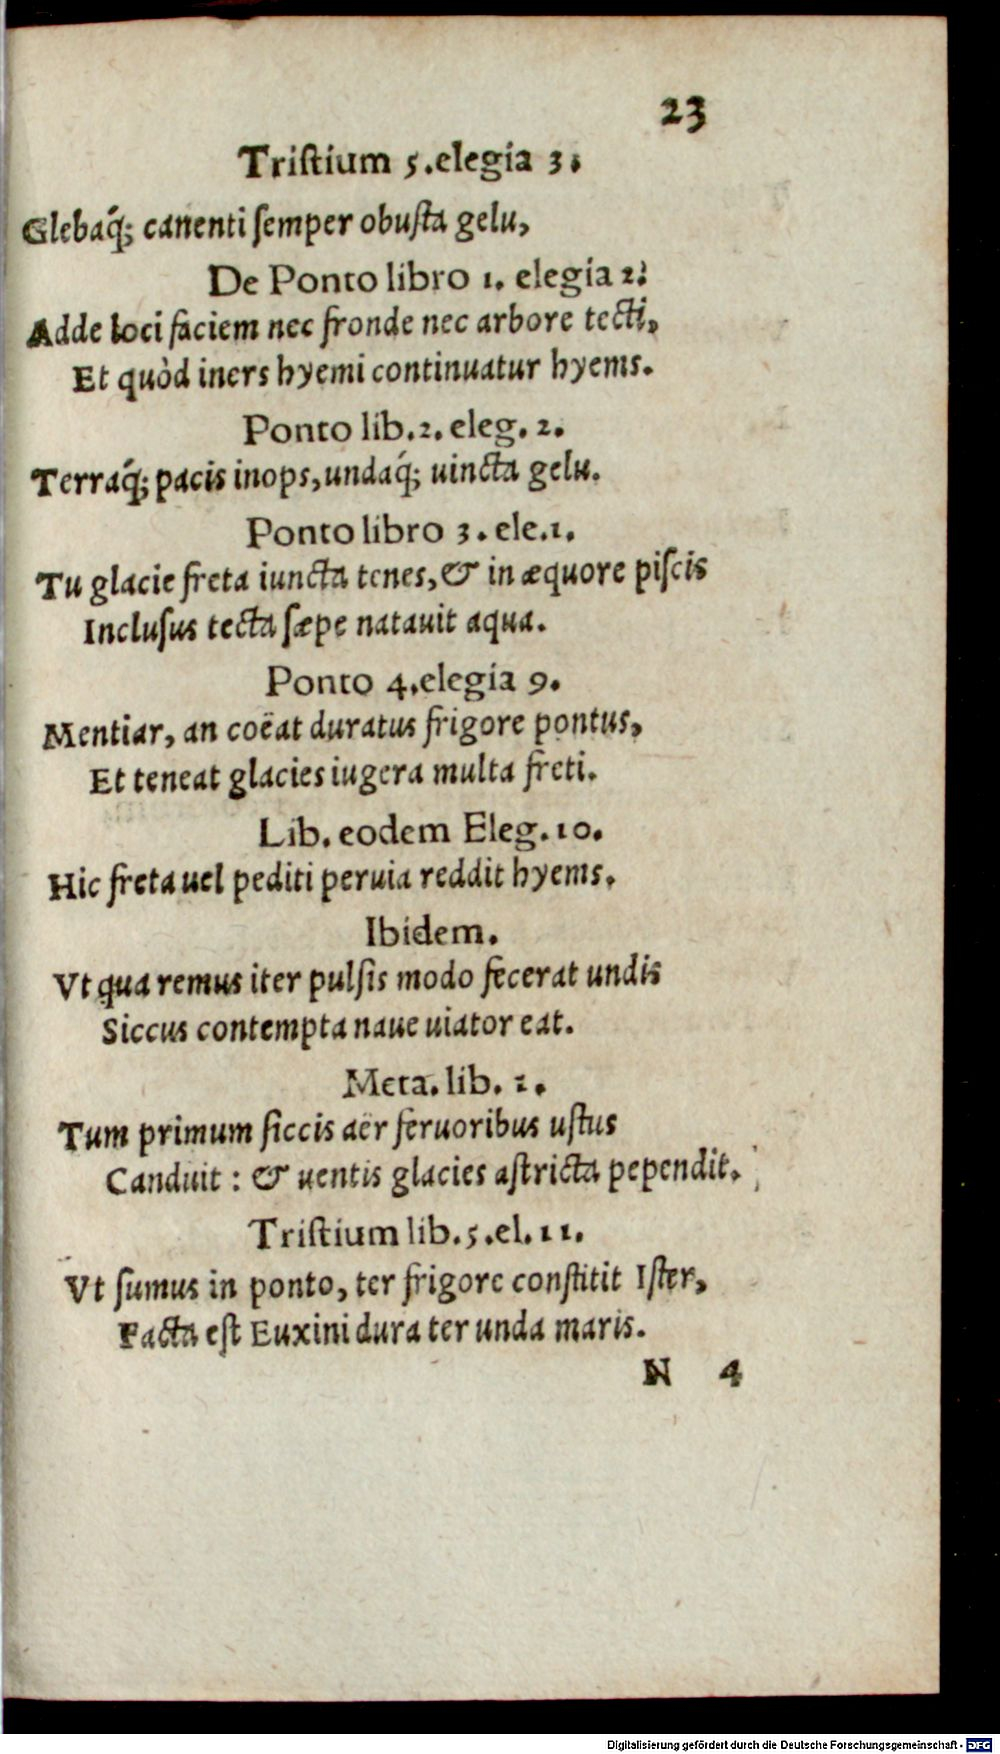 23
Tristium 5. elegia 3.
Glebaq́; canenti semper obusta gelu,
De Ponto libro 1. elegia 2.
Adde loci faciem nec fronde nec arbore tecti,
Et quòd iners hyemi continuatur hyems.
Ponto lib. 2. eleg. 2.
Terraq́; pacis inops, undaq́; uincta gelu.
Ponto libro 3. ele. 1.
Tu glacie freta iuncta tenes, & in æquore piscis
Inclusus tecta sæpe natauit aqua.
Ponto 4. elegia 9.
Mentiar, an coëat duratus frigore pontus,
Et teneat glacies iugera multa freti.
Lib. eodem Eleg. 10.
Hic freta uel pediti peruia reddit hyems.
Ibidem.
Vt qua remus iter pulsis modo fecerat undis
Siccus contempta naue uiator eat.
Meta. lib. 1.
Tum primum siccis aër feruoribus ustus
Canduit: & uentis glacies astricta pependit.
Tristium lib. 5. el. 11.
Vt sumus in ponto, ter frigore constitit Ister,
Facta est Euxini dura ter unda maris.
N 4
Digitalisierung gefördert durch die Deutsche Forschungsgemeinschaft - DFG